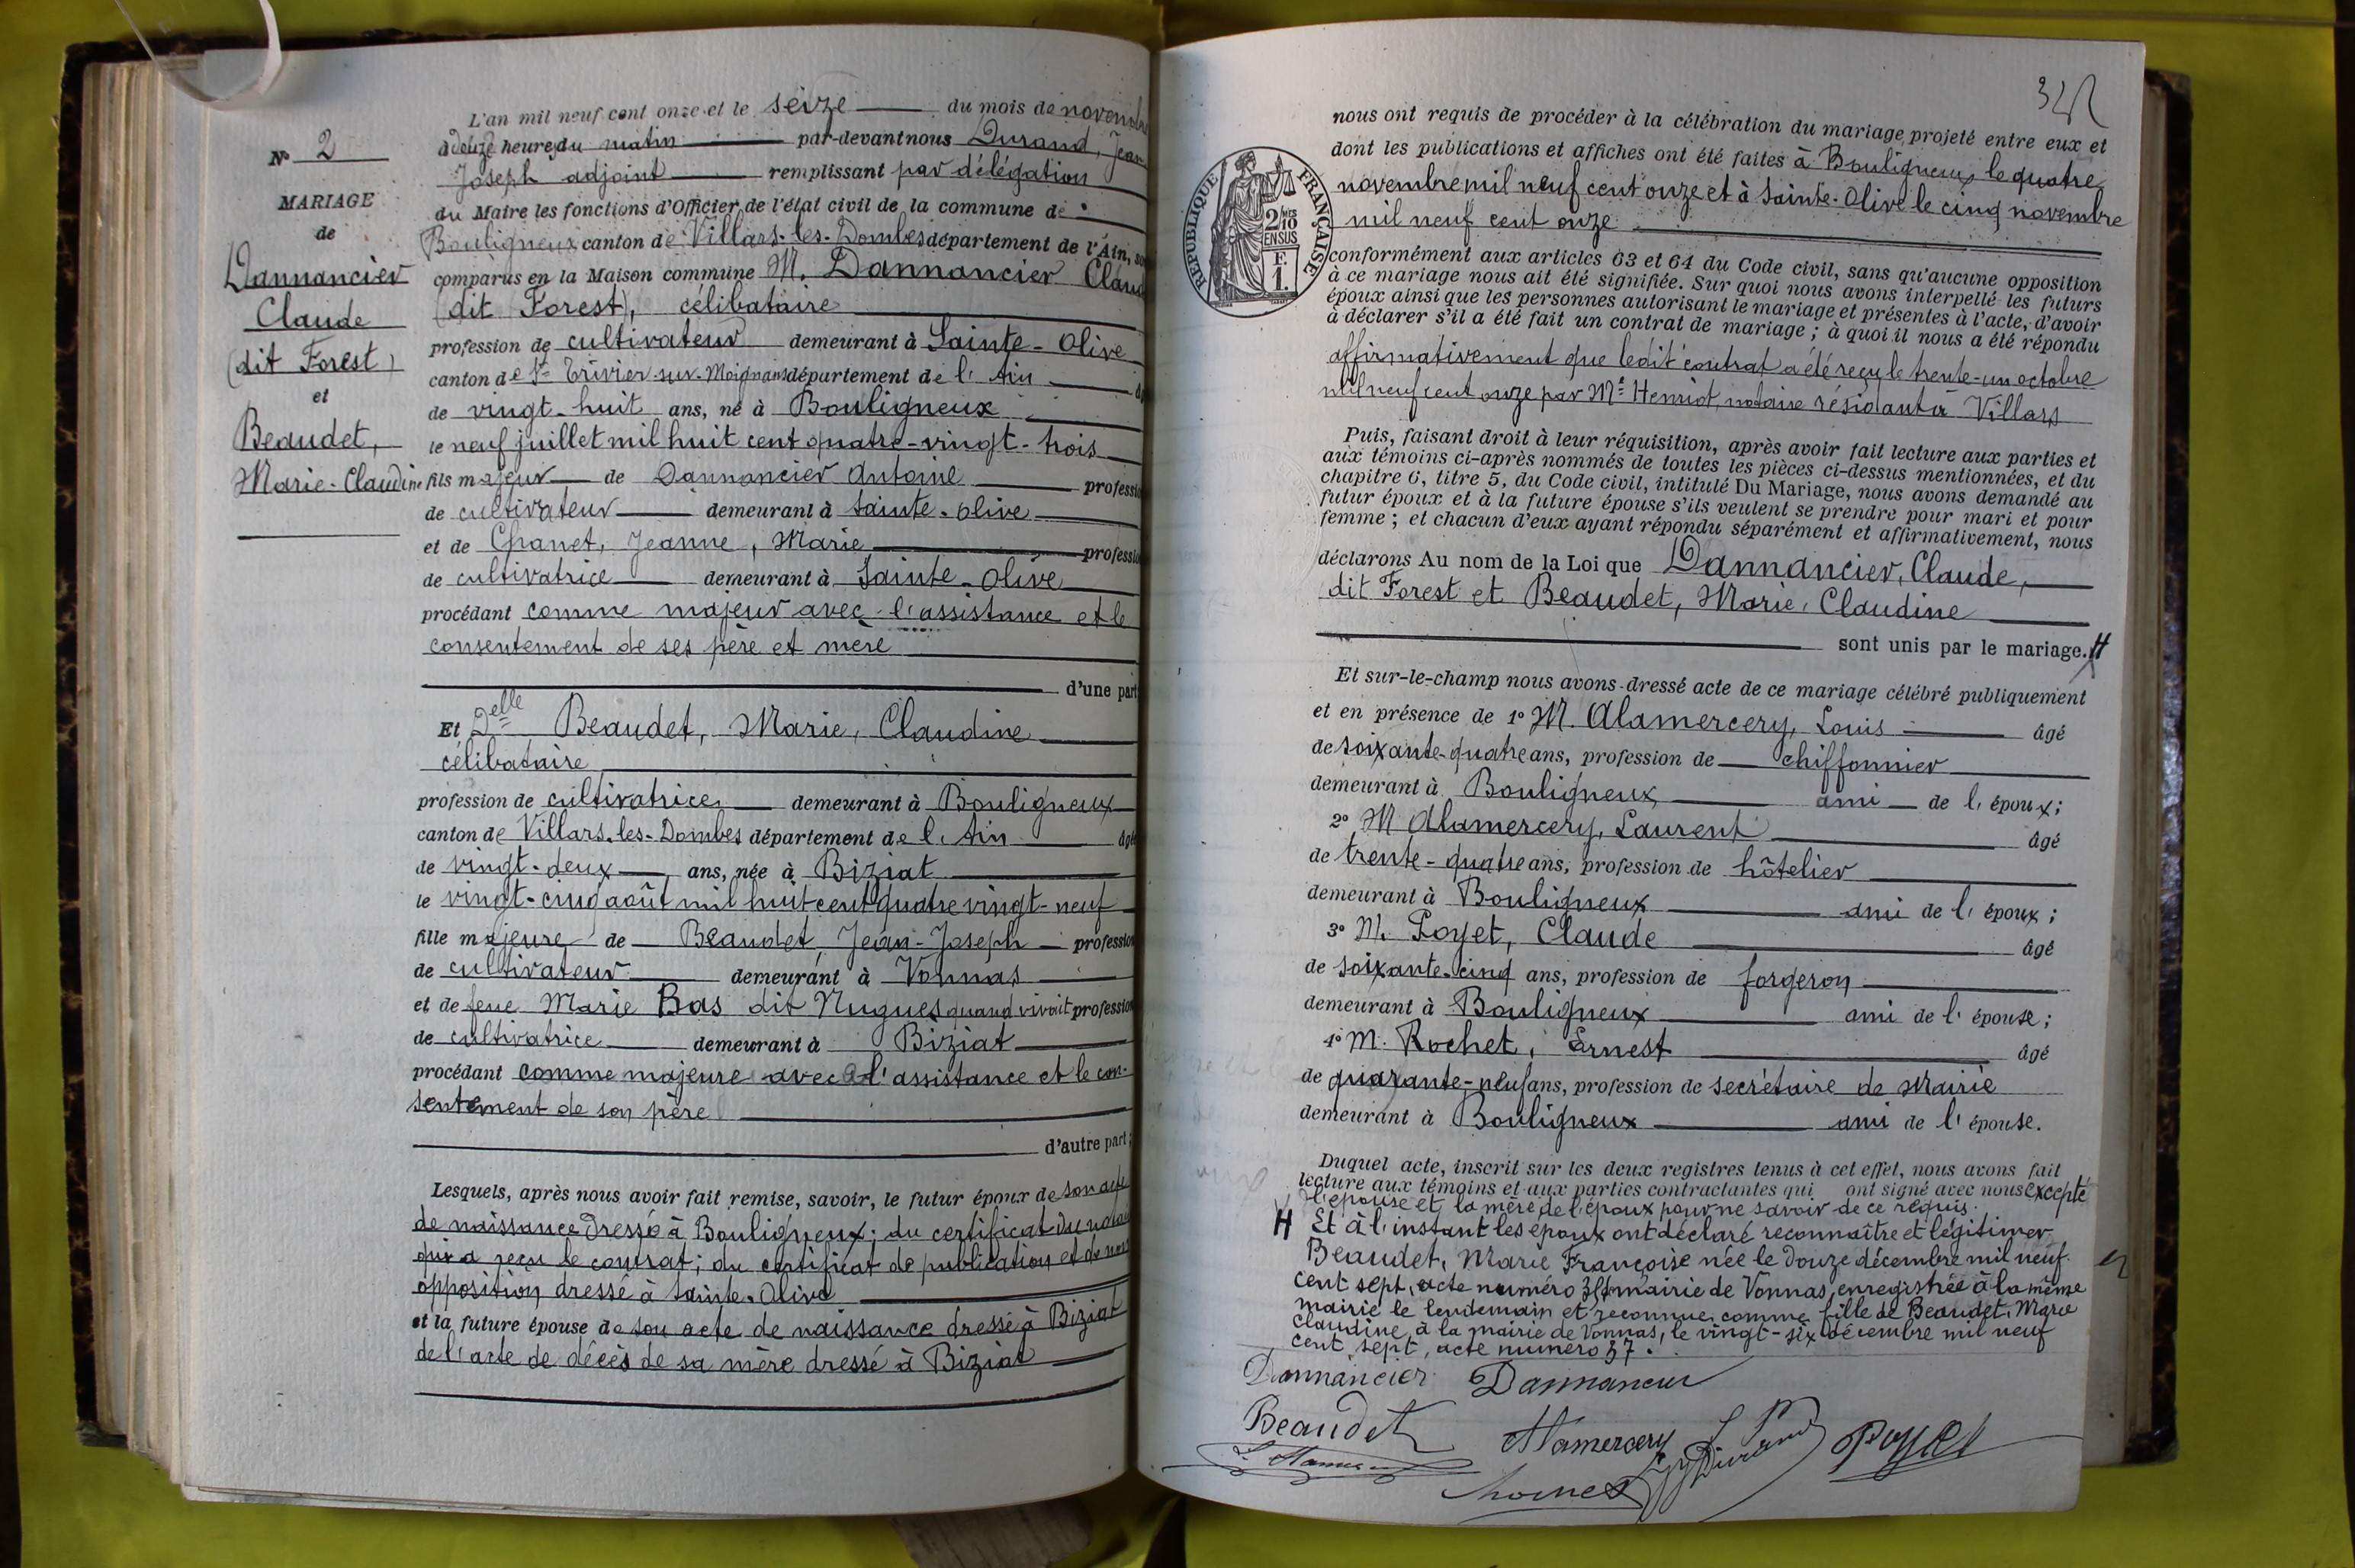 N° 2
MARIAGE
de
Dannancier
Claude
(dit Forest)
et
Beaudet,
Marie-Claudine
L'an mil neuf cent onze et le seize du mois de novembre
heures du matin par-devant nous Durand, Jean
Joseph adjoint remplissant par délégation
du Maire les fonctions d'Officier de l'état civil de la commune de
Bouligneux canton de Villars-les-Dombes département de l'Ain, so
comparus en la Maison commune M. Dannancier Clau
(dit Forest), célibataire
profession de cultivateur demeurant à Sainte-Olive
canton de St Trivier-sur-Moignans département de l'Ain
de vingt-huit ans, né à Bouligneux
le neuf juillet mil huit cent quatre-vingt-trois
fils majeur de Dannancier Antoine professio
de cultivateur demeurant à Sainte-Olive
et de Chanet, Jeanne, Marie professio
de cultivatrice demeurant à Sainte-Olive
procédant comme majeur avec l'assistance et le
consentement de ses père et mère
d'une part
Et Delle Beaudet, Marie, Claudine
célibataire
profession de cultivatrice demeurant à Bouligneux
canton de Villars-les-Dombes département de l'Ain âgé
de vingt-deux ans, née à Biziat
le vingt-cinq août mil huit cent quatre vingt-neuf
fille majeure de Beaudet, Jean-Joseph profession
de cultivateur demeurant à Vonnas
et de feue Marie Bas dit Nugues quand vivait profession
de cultivatrice demeurant à Biziat
procédant comme majeure avec l'assistance et le con-
sentement de son père
d'autre part;
Lesquels, après nous avoir fait remise, savoir, le futur époux de son acte
de naissance dressé à Bouligneux; du certificat du notai
qui a reçu le contrat; du certificat de publication et de non
opposition dressé à Sainte-Olive
et la future épouse de son acte de naissance dressé à Biziat
de l'acte de décès de sa mère dressé à Biziat
RÉPUBLIQUE FRANÇAISE
2/10 EN SUS
F.
1.
nous ont requis de procéder à la célébration du mariage projeté entre eux et
dont les publications et affiches ont été faites à Bouligneux le quatre
novembre mil neuf cent onze et à Sainte-Olive le cinq novembre
mil neuf cent onze
conformément aux articles 63 et 64 du Code civil, sans qu'aucune opposition
à ce mariage nous ait été signifiée. Sur quoi nous avons interpellé les futurs
époux ainsi que les personnes autorisant le mariage et présentes à l'acte, d'avoir
à déclarer s'il a été fait un contrat de mariage; à quoi il nous a été répondu
affirmativement que ledit contrat a été reçu le trente-un octobre
mil neuf cent onze par Me Henriot, notaire résidant à Villars
Puis, faisant droit à leur réquisition, après avoir fait lecture aux parties et
aux témoins ci-après nommés de toutes les pièces ci-dessus mentionnées, et du
chapitre 6, titre 5, du Code civil, intitulé Du Mariage, nous avons demandé au
futur époux et à la future épouse s'ils veulent se prendre pour mari et pour
femme; et chacun d'eux ayant répondu séparément et affirmativement, nous
déclarons Au nom de la Loi que Dannancier, Claude,
dit Forest et Beaudet, Marie, Claudine
sont unis par le mariage. H
Et sur-le-champ nous avons dressé acte de ce mariage célébré publiquement
et en présence de 1° M. Alamercery, Louis âgé
de soixante-quatre ans, profession de chiffonnier
demeurant à Bouligneux ami de l'époux;
2° M Alamercery, Laurent âgé
de trente-quatre ans, profession de hôtelier
demeurant à Bouligneux ami de l'époux;
3° M. Poyet, Claude âgé
de soixante-cinq ans, profession de forgeron
demeurant à Bouligneux ami de l'épouse;
4° M. Rochet, Ernest âgé
de quarante-neuf ans, profession de secrétaire de Mairie
demeurant à Bouligneux ami de l'épouse.
Duquel acte, inscrit sur les deux registres tenus à cet effet, nous avons fait
lecture aux témoins et aux parties contractantes qui ont signé avec nous excepté
l'épouse et la mère de l'époux pour ne savoir de ce requis.
H Et à l'instant les époux ont déclaré reconnaître et légitimer
Beaudet, Marie Françoise née le douze décembre mil neuf
cent sept, acte numéro mairie de Vonnas, enregistrée à la même
mairie le lendemain et reconnue comme fille de Beaudet, Marie
Claudine, à la mairie de Vonnas, le vingt-six décembre mil neuf
cent sept, acte numéro 37.
Dannancier Dannancier
Beaudet
Alamercery
Durand
Poyet